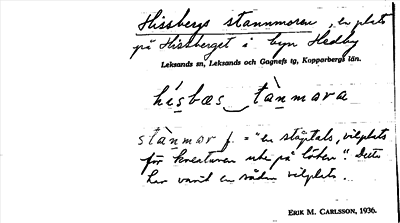 Hissbergs stannmoren, en plats
på Hissberget i byn Hedby
Leksands sn, Leksands och Gagnefs tg, Kopparbergs län.
hísbæs tànmara
stànmar f. = "en
för kreaturen ute på löten". Detta
har varit en sådan vilplats.
ERIK M. CARLSSON, 1936.